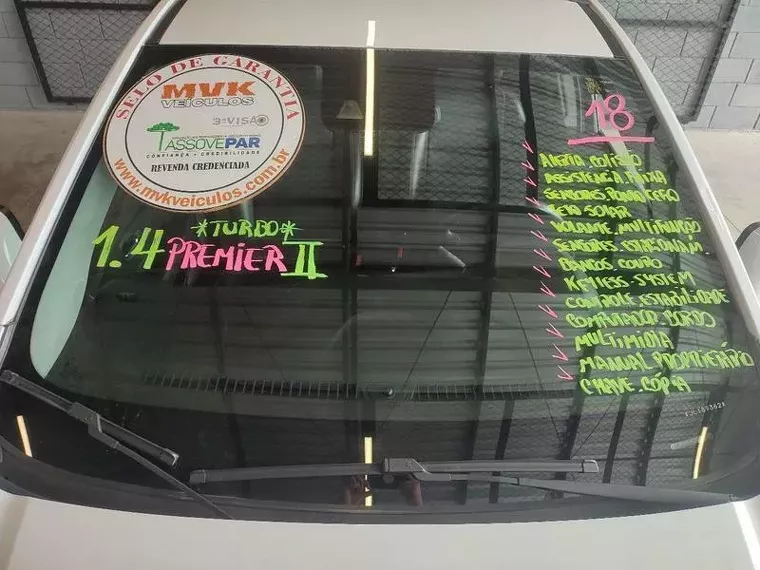 SELO DE GARANTIA
MVK
VEÍCULOS
3ª VISÃO
ASSOVEPAR
CONFIANÇA • CREDIBILIDADE
REVENDA CREDENCIADA
www.mvkveiculos.com.br
*TURBO*
1.4 PREMIER II
18
ALERTA COLISÃO
ASSISTENCIA FAIXA
SENSORES. PONTO CEGO
TETO SOLAR
VOLANTE MULTIFUNÇÃO
SENSORES. ESTACIONAM
BANCOS. COURO
KEYLESS. SYSTEM
CONTROLE. ESTABILIDADE
COMPUTADOR. BORDO
MULTIMIDIA
MANUAL PROPRIETÁRIO
CHAVE. CÓPIA